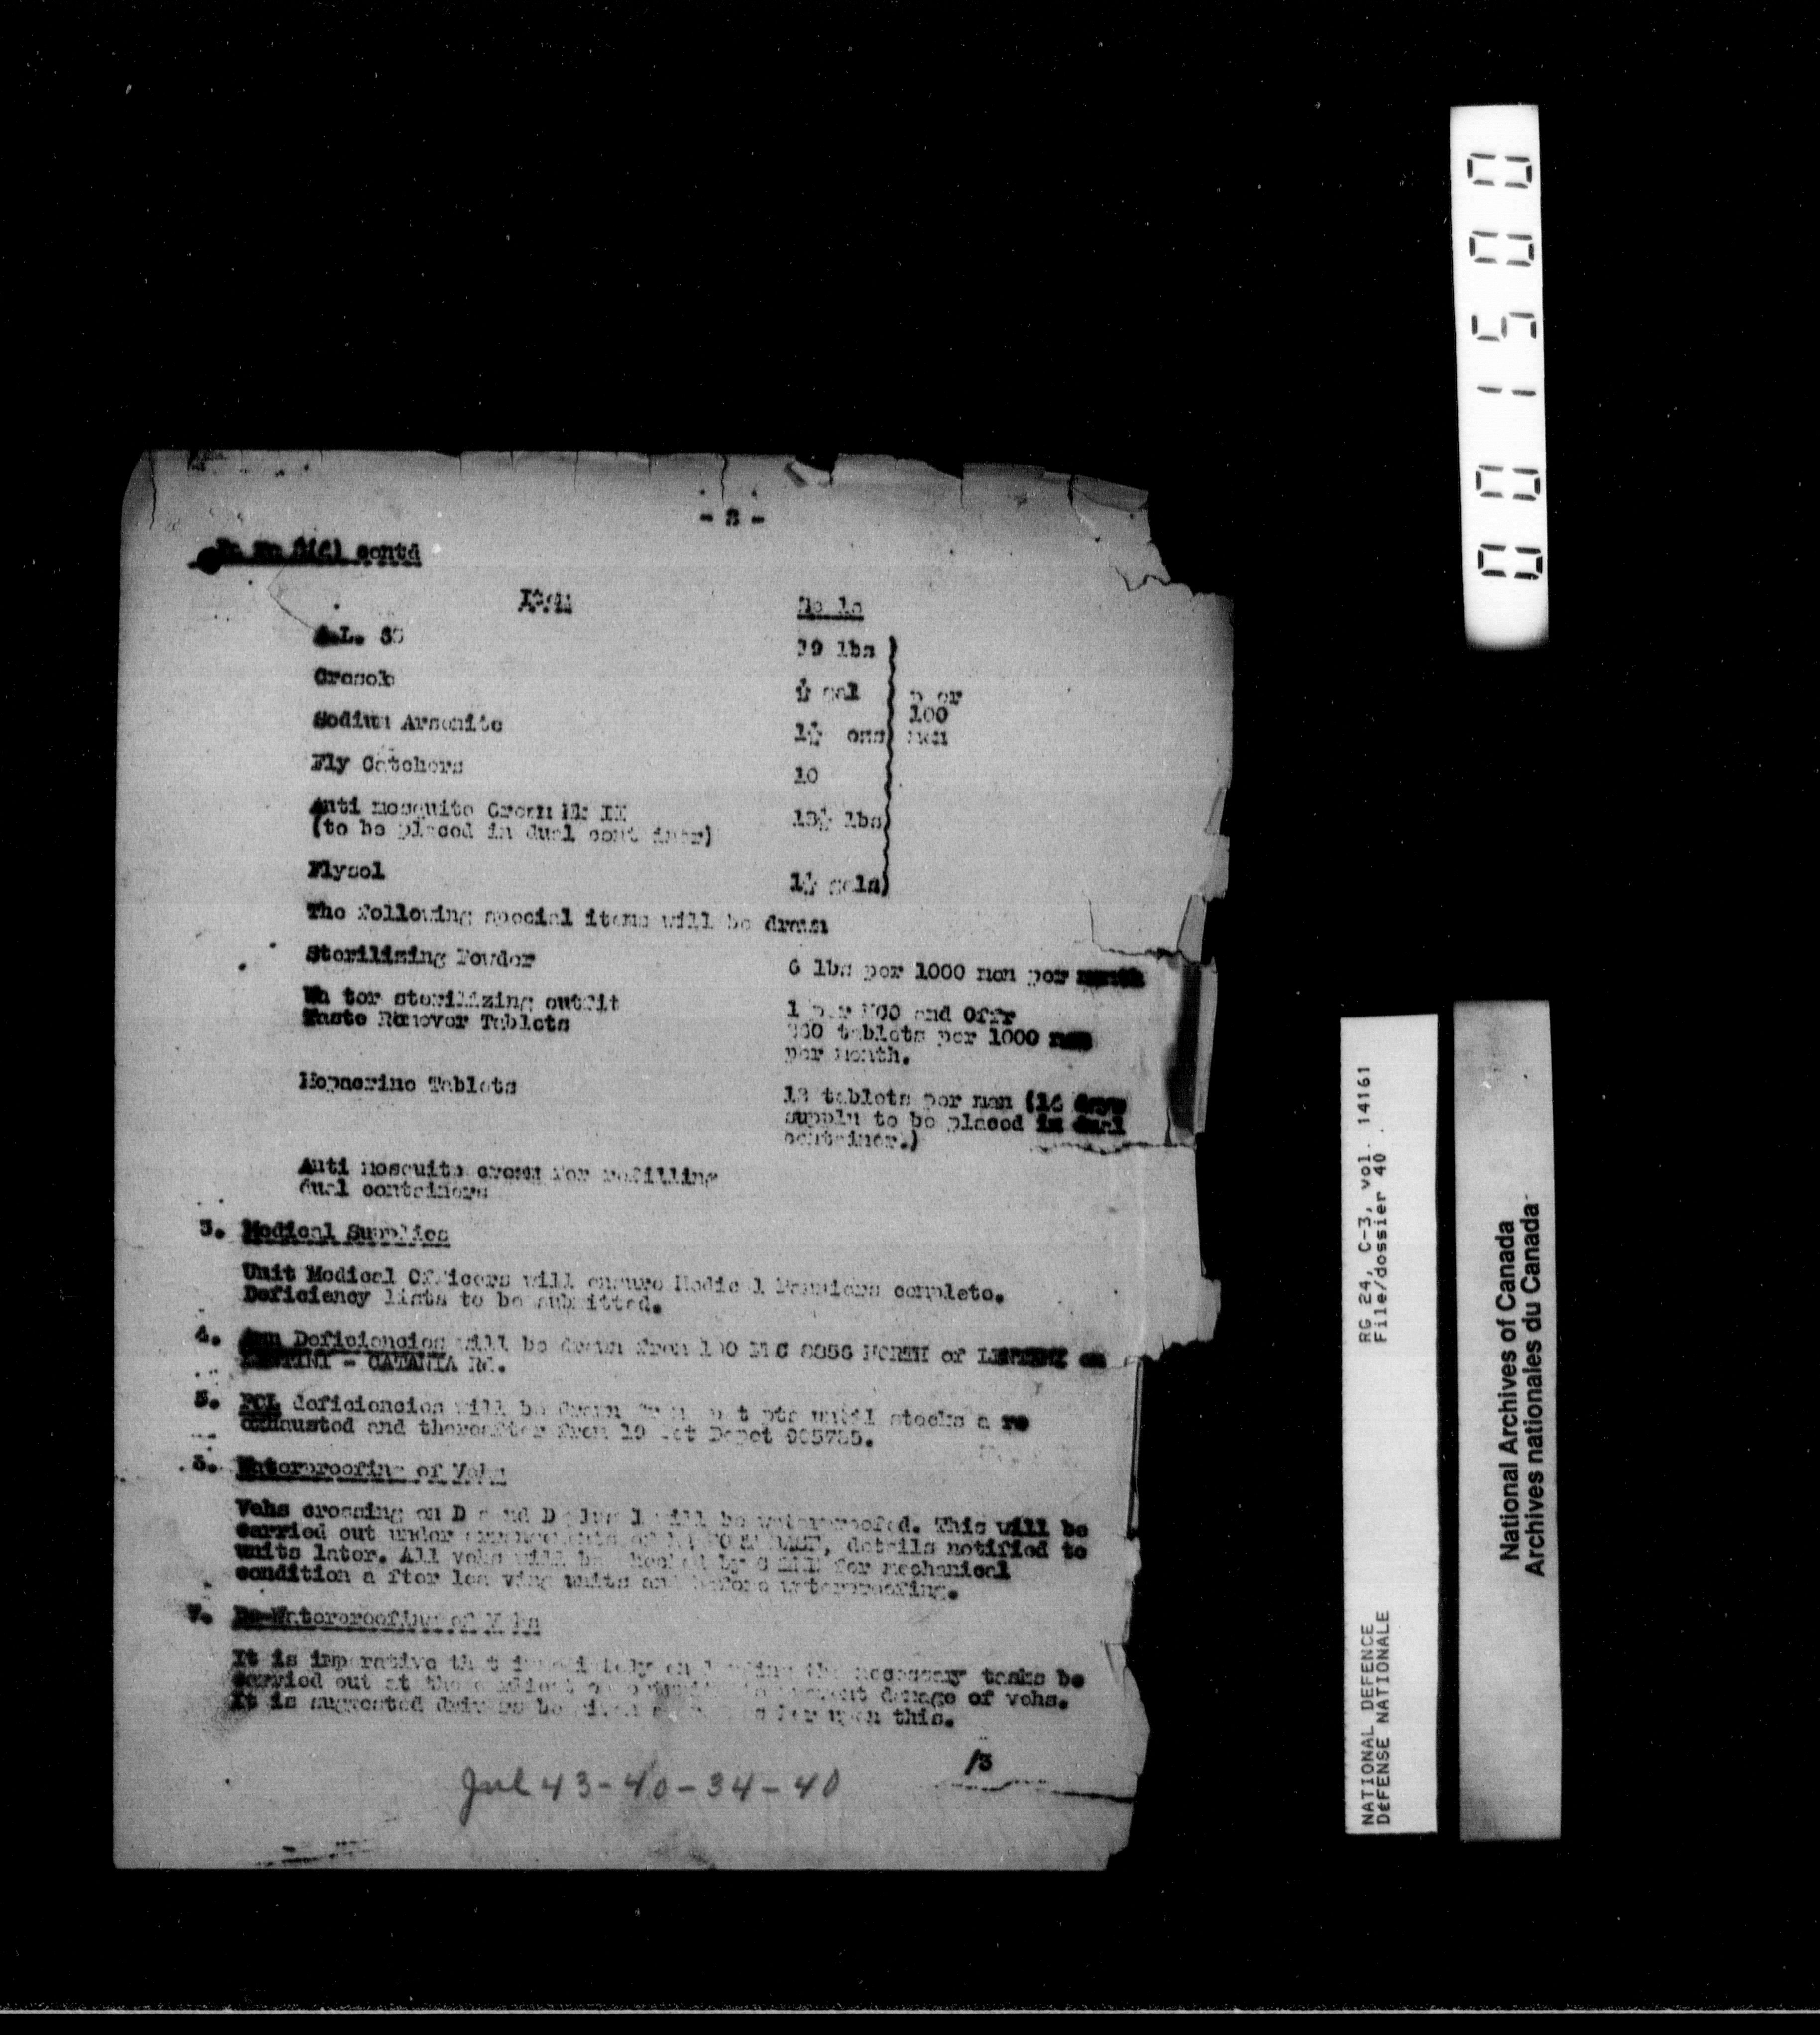 - 2 -
contd
Item
A.L. 63
19 lbs
Cresol
½ gal
per
100
men
Sodium Arsenite
1½ ozs
Fly Catchers
10
Anti mosquito Cream Mk II
(to be placed in dual container)
13½ lbs
Flysol
1½ gals
The following special items will be drawn
Sterilizing Powder
6 lbs per 1000 men per month
Water sterilizing outfit
1 per NCO and Offr
Taste Remover Tablets
tablets per 1000 men
per month.
Mepacrine Tablets
12 tablets per man (14 days
supply to be placed in dual
container.)
Anti mosquito cream for refilling
dual containers
3. Medical Supplies
Unit Medical Officers will ensure Medical Panniers complete.
Deficiency lists to be submitted.
4. Amn Deficiencies will be drawn from NORTH of LENTINI on
LENTINI - CATANIA Rd.
5. POL deficiencies will be drawn from pet pts until stocks a re
exhausted and thereafter from 19 Pet Depot
6. Waterproofing of Vehs
Vehs crossing on D and D plus 1 will be waterproofed. This will be
carried out under arrangements of details notified to
units later. All vehs will be checked by for mechanical
condition a fter lea ving units and before waterproofing.
7. De-Waterproofing of Vehs
It is imperative that immediately on landing the necessary tasks be
carried out at the earliest opportunity to prevent damage of vehs.
It is suggested drivers be given upon this.
/3
Jul 43-40-34-40
001500
RG 24, C-3, vol. 14161
File/dossier 40
NATIONAL DEFENCE
DÉFENSE NATIONALE
National Archives of Canada
Archives nationales du Canada